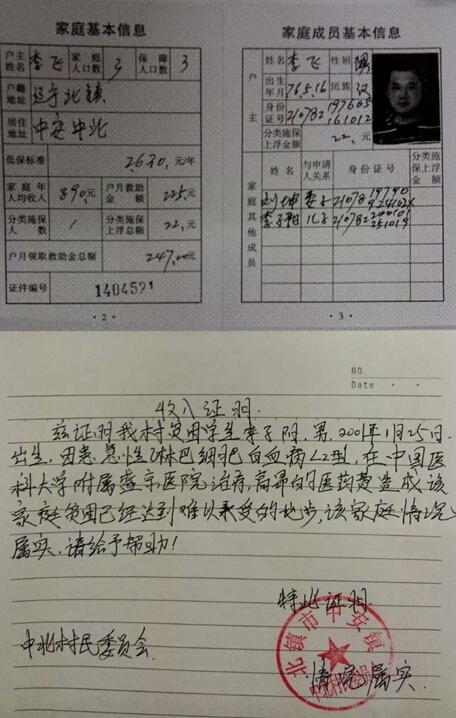 家庭基本信息
户主姓名 李飞 家庭人口数 3 保障人口数 3
户籍地址 辽宁北镇
居住地址 中安中北
低保标准 2630.元/年
家庭年人均收入 890元 户月救助金额 225元
分类施保人数 1 分类施保上浮总额 22元
户月领取救助金总额 247.00元
证件编号 1404521
·2·
家庭成员基本信息
户主
姓名 李飞 性别 男
出生年月 76.5.16 民族 汉
身份证号
分类施保上浮金额 22.元
家庭其他成员
姓名 与申请人关系 身份证号 分类施保上浮金额
刘坤 妻子
李子阳 儿子
·3·
NO.
Date · ·
收入证明.
兹证明我村贫困学生李子阳,男,2001年1月25日
出生,因患急性淋巴细胞白血病L2型,在中国医
科大学附属盛京医院治疗,高昂的医药费造成该
家庭贫困已经达到难以承受的地步,该家庭情况
属实,请给予帮助!
特此证明
中北村民委员会
北镇市中安镇
情况属实.